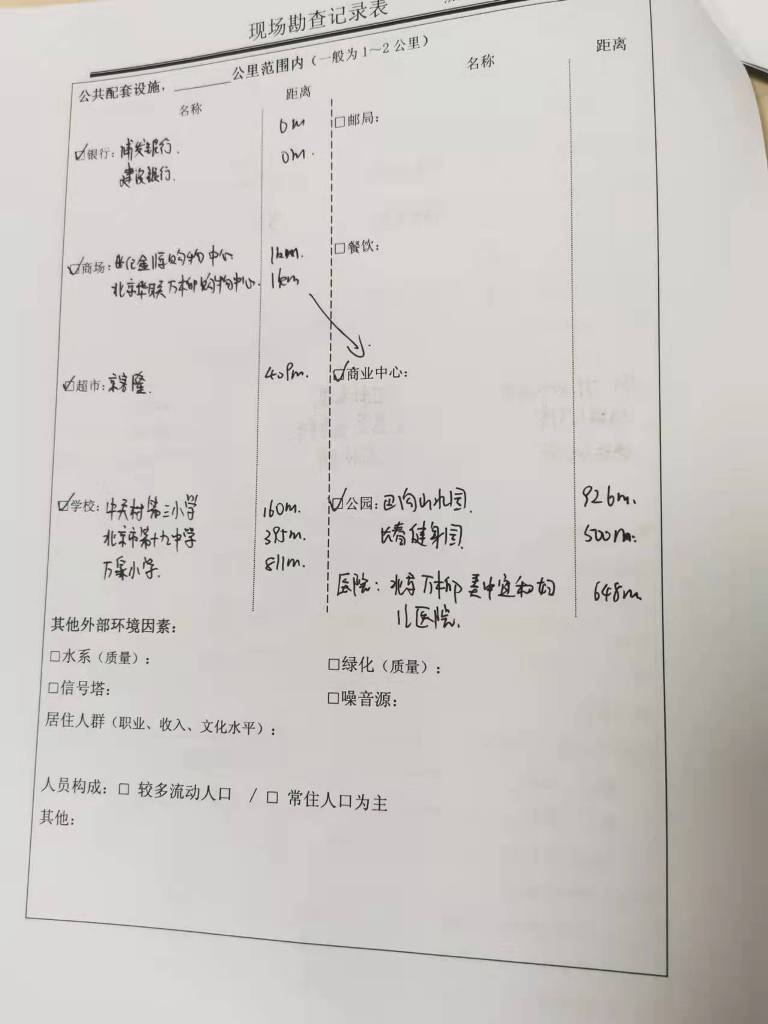 现场勘查记录表
公共配套设施，______公里范围内（一般为1～2公里）
名称 距离 名称 距离
☑银行：浦发银行. 0m
建设银行. 0m.
□邮局：
☑商场：世纪金源购物中心 1km.
北京华联万柳购物中心. 1km
□餐饮：
☑超市：京客隆. 409m.
☑商业中心：
☑学校：中关村第三小学 160m.
北京市第十九中学 395m.
万泉小学. 811m.
☑公园：巴沟山水园. 926m.
长春健身园. 500m.
医院：北京万柳美中宜和妇 648m.
儿医院.
其他外部环境因素：
□水系（质量）： □绿化（质量）：
□信号塔： □噪音源：
居住人群（职业、收入、文化水平）：
人员构成：□ 较多流动人口 / □ 常住人口为主
其他：